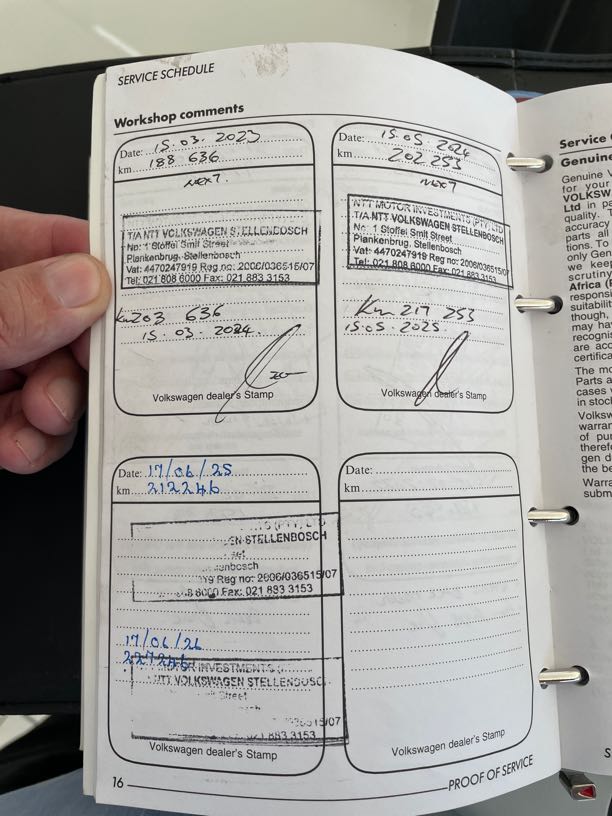 SERVICE SCHEDULE
Workshop comments
Date: 15.03.2023
km 188 636
NEXT.
NTT MOTOR INVESTMENTS (PTY) LTD
T/A NTT VOLKSWAGEN STELLENBOSCH
No: 1 Stoffel Smit Street
Plankenbrug. Stellenbosch
Vat: 4470247919 Reg no: 2006/036515/07
Tel: 021 808 6000 Fax: 021 883 3153
Km 203 636
15.03.2024.
Volkswagen dealer's Stamp
Date: 15.05.2024
km 202 253
NEXT
NTT MOTOR INVESTMENTS (PTY) LTD
T/A NTT VOLKSWAGEN STELLENBOSCH
No: 1 Stoffel Smit Street
Plankenbrug. Stellenbosch
Vat: 4470247919 Reg no: 2006/036515/07
Tel: 021 808 6000 Fax: 021 883 3153
Km 217 253
15.05.2025
Volkswagen dealer's Stamp
Date: 17/06/25
km 212246
(PTY) LTD
STELLENBOSCH
Reg no: 2006/036515/07
6000 Fax: 021 883 3153
17/06/26
227246
INVESTMENTS
NTT VOLKSWAGEN STELLENBOSC
Street
883 3153
Volkswagen dealer's Stamp
Date:
km
Volkswagen dealer's Stamp
16
PROOF OF SERVICE
Service
Genuine
Genuine V
for your
VOLKSW
Ltd in pa
quality.
accuracy
parts all
tions. To
only Gen
we keep
scrutiny
Africa (P
responsi
suitabilit
though,
may hav
recognis
are acc
certifica
The mo
Parts a
cases w
in stoc
Volksw
warran
of pur
theref
gen d
the be
Warra
subm
S